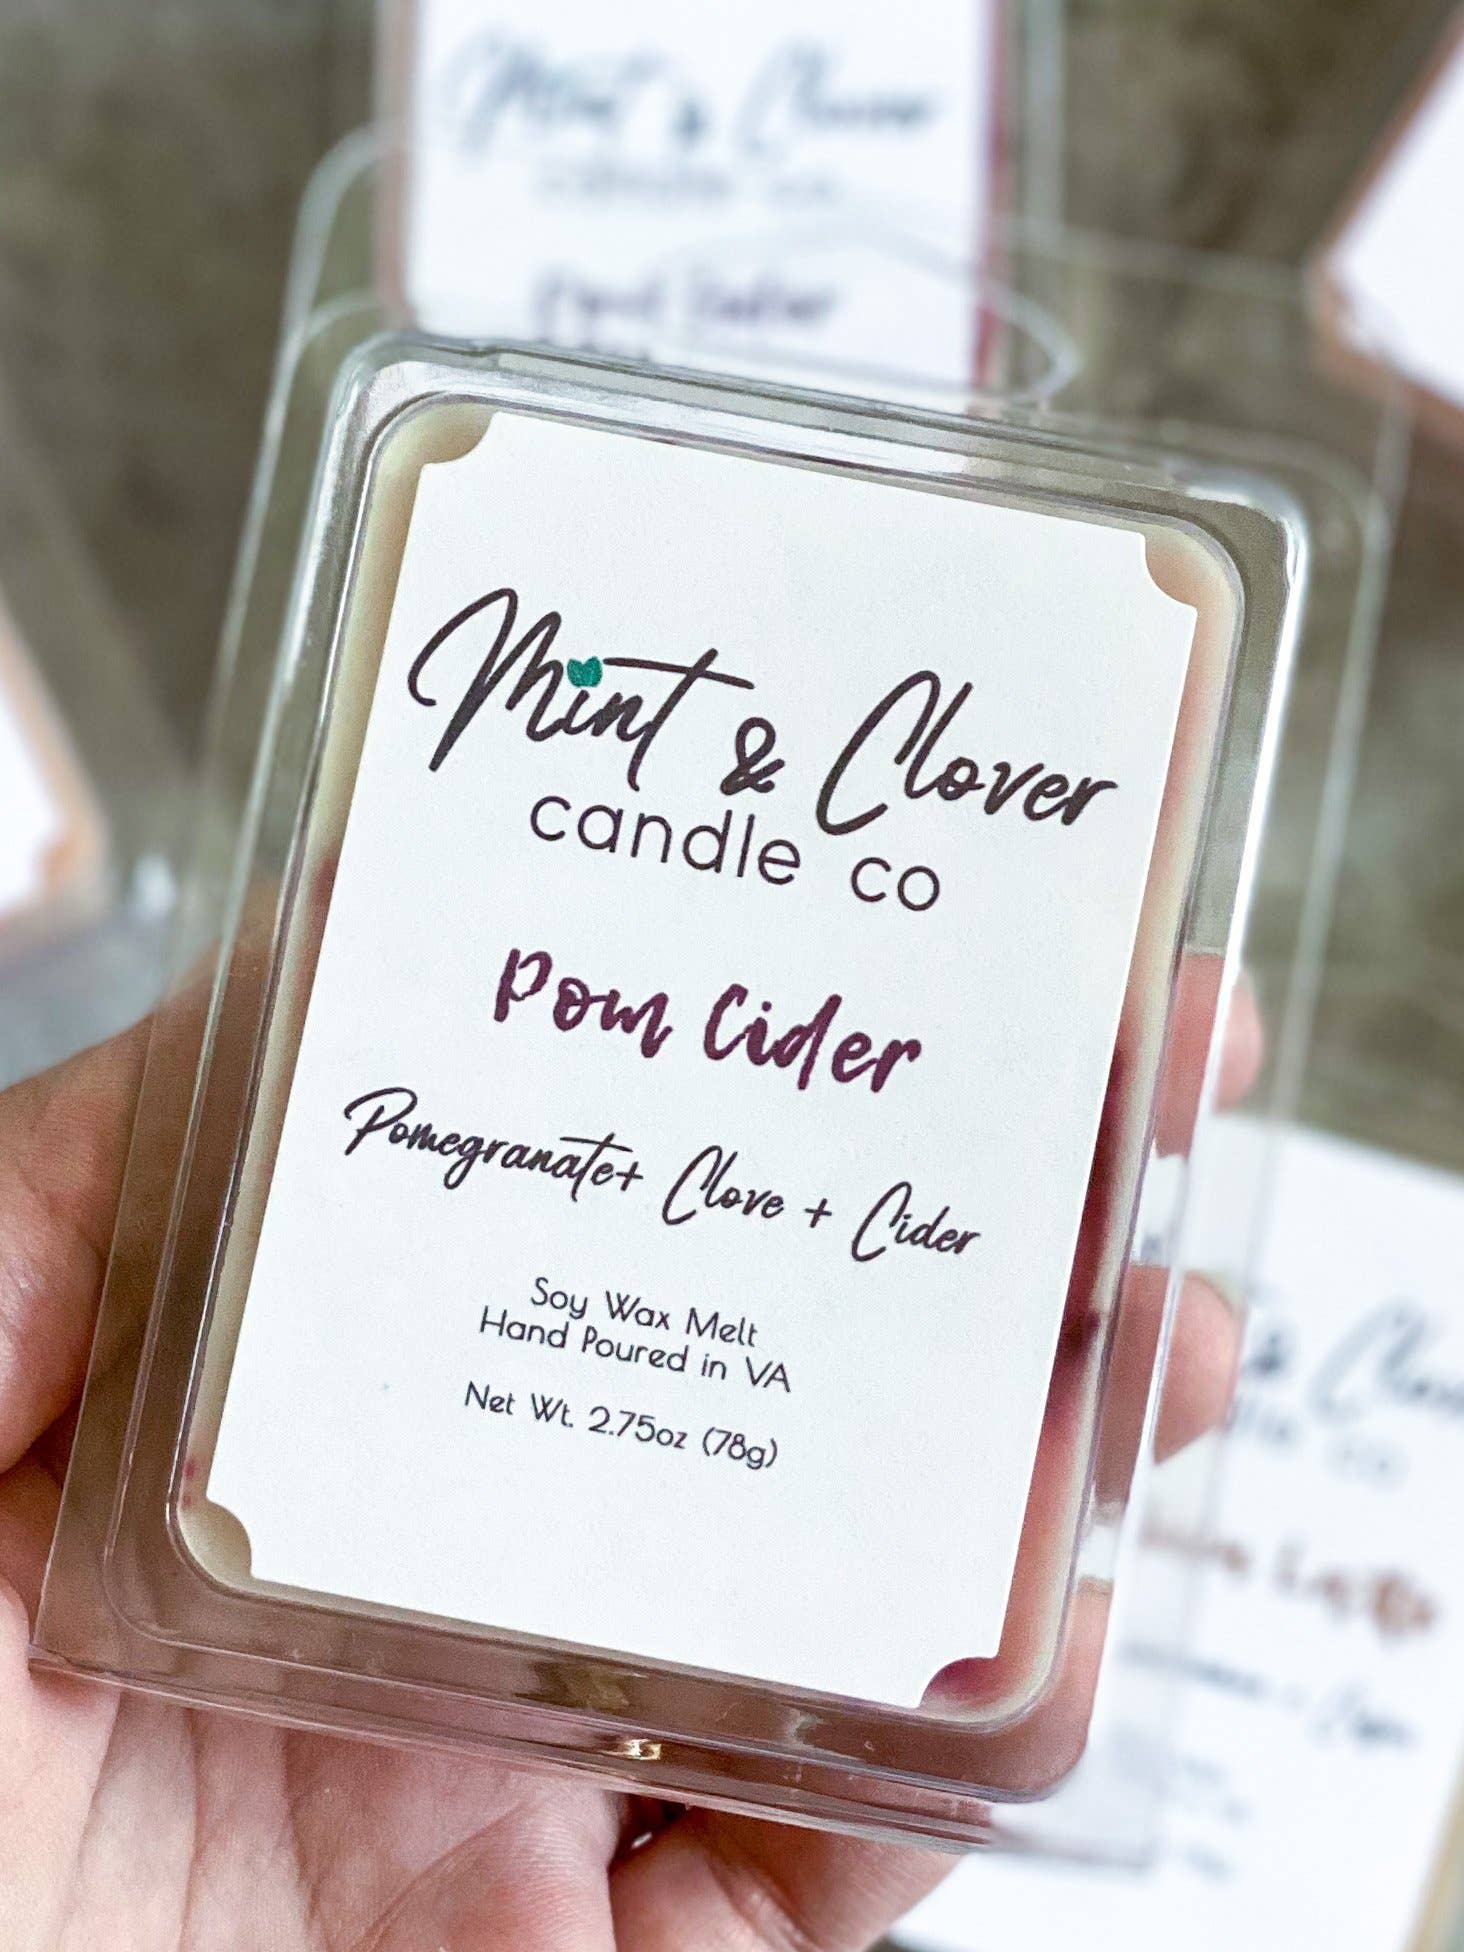 Mint & Clover
candle co
Pom Cider
Pomegranate+ Clove + Cider
Soy Wax Melt
Hand Poured in VA
Net Wt. 2.75oz (78g)
Mint & Clover
candle co
Pom Cider
& Clover
candle co